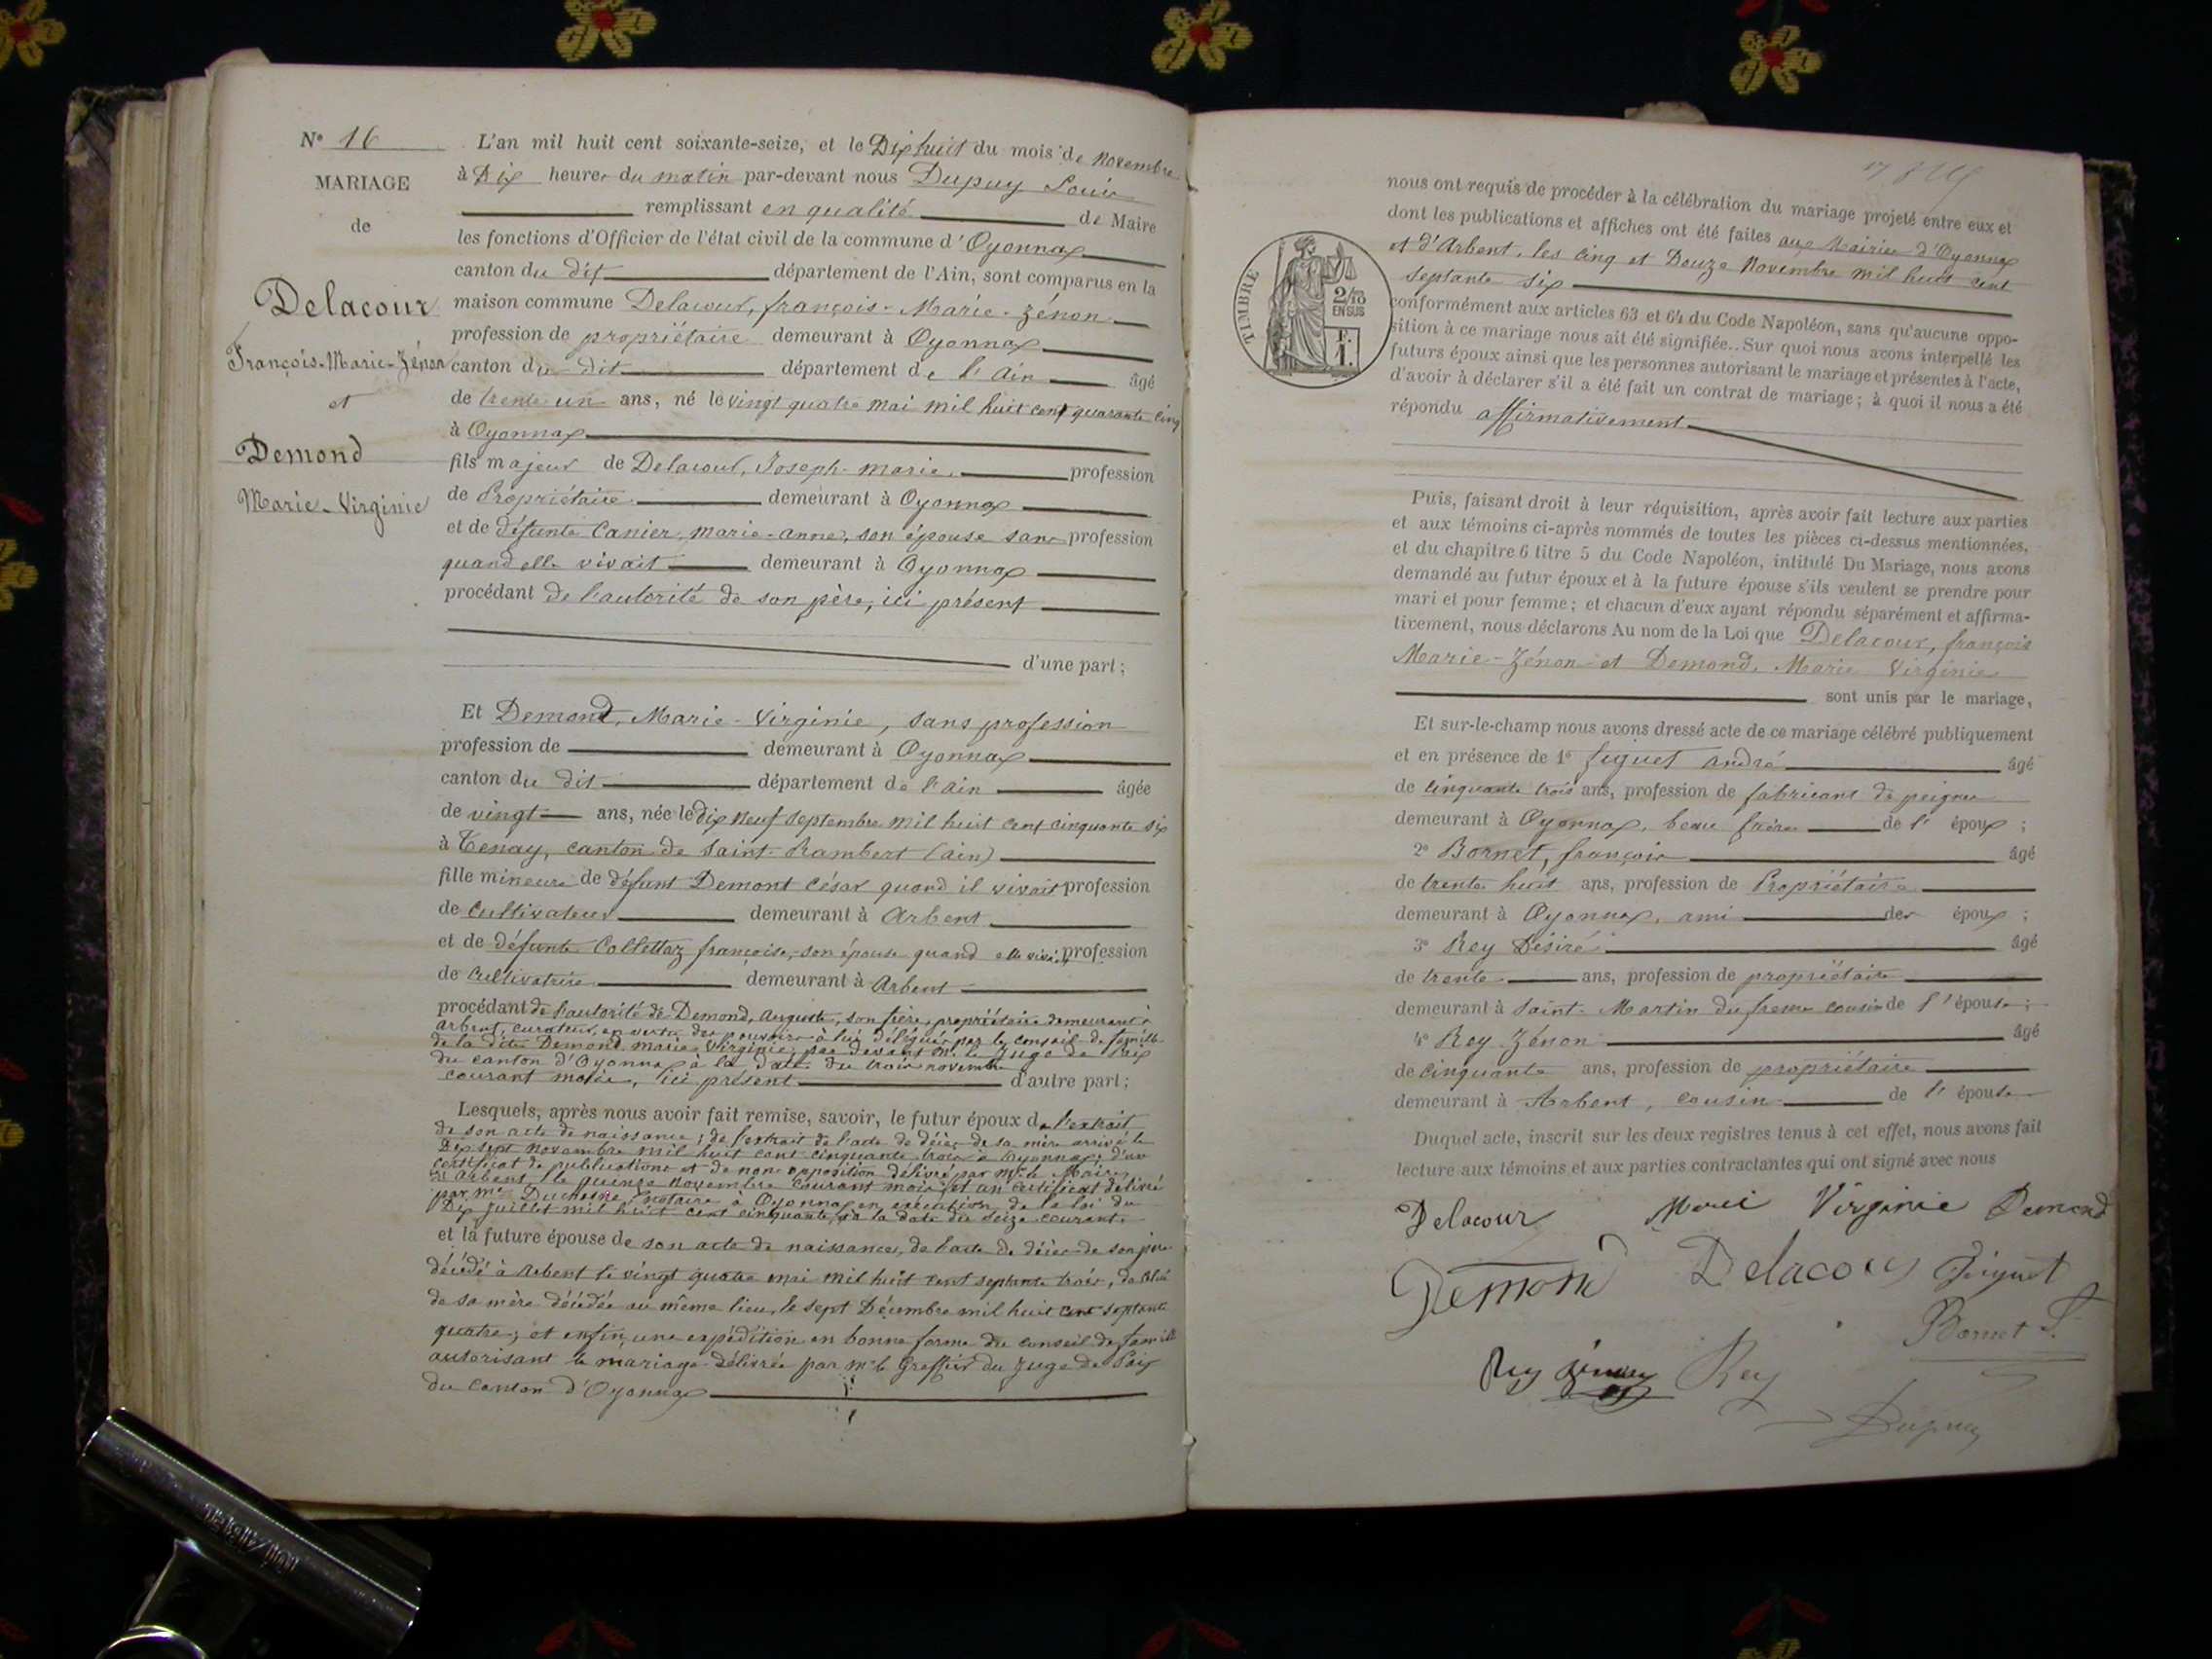 N° 16
MARIAGE
de
Delacour
François-Marie-Zénon
et
Demond
Marie-Virginie
L'an mil huit cent soixante-seize, et le Dix huit du mois de Novembre
à Dix heures du matin par-devant nous Dupuy Louis
remplissant en qualité de Maire
les fonctions d'Officier de l'état civil de la commune d'Oyonnax
canton du dit département de l'Ain, sont comparus en la
maison commune Delacour, françois-Marie-Zénon
profession de propriétaire demeurant à Oyonnax
canton du dit département de l'Ain âgé
de trente un ans, né le vingt quatre mai mil huit cent quarante cinq
à Oyonnax
fils majeur de Delacour, Joseph-marie, profession
de Propriétaire demeurant à Oyonnax
et de défunte Canier, marie-anne, son épouse sans profession
quand elle vivait demeurant à Oyonnax
procédant de l'autorité de son père, ici présent
d'une part;
Et Demond, Marie-Virginie, sans profession
profession de demeurant à Oyonnax
canton du dit département de l'ain âgée
de vingt ans, née le dix neuf septembre mil huit cent cinquante six
à Tenay, canton de Saint-Rambert (ain)
fille mineure de défunt Demont César quand il vivait profession
de cultivateur demeurant à Arbent
et de défunte Collettaz françoise, son épouse quand elle vivait profession
de cultivatrice demeurant à Arbent
procédant de l'autorité de Demond, Auguste, son frère, propriétaire demeurant à
arbent, curateur en vertu des pouvoirs à lui délégués par le conseil de famille
de la dite Demond Marie Virginie, par devant Mr le Juge de Paix
du canton d'Oyonnax à la date du trois novembre
courant mois, ici présent d'autre part;
Lesquels, après nous avoir fait remise, savoir, le futur époux de l'extrait
de son acte de naissance; de l'extrait de l'acte de décès de sa mère arrivé le
Dix sept Novembre mil huit cent cinquante trois à Oyonnax; d'un
certificat de publications et de non opposition délivré par Mr le Maire
d'Arbent, le quinze Novembre courant mois et un certificat délivré
par Me Duchesne, notaire à Oyonnax en exécution de la loi du
Dix juillet mil huit cent cinquante, à la date du seize courant
et la future épouse de son acte de naissance, de l'acte de décès de son père
décédé à Arbent le vingt quatre mai mil huit cent septante trois, de celui
de sa mère décédée au même lieu, le sept Décembre mil huit cent septante
quatre; et enfin une expédition en bonne forme du conseil de famille
autorisant le mariage délivrée par Mr le Greffier du Juge de Paix
du canton d'Oyonnax
nous ont requis de procéder à la célébration du mariage projeté entre eux et
dont les publications et affiches ont été faites aux Mairies d'Oyonnax
et d'Arbent, les cinq et Douze Novembre mil huit cent
septante six
TIMBRE
2/10
EN SUS
F.
1.
conformément aux articles 63 et 64 du Code Napoléon, sans qu'aucune oppo-
sition à ce mariage nous ait été signifiée.. Sur quoi nous avons interpellé les
futurs époux ainsi que les personnes autorisant le mariage et présentes à l'acte,
d'avoir à déclarer s'il a été fait un contrat de mariage; à quoi il nous a été
répondu affirmativement
Puis, faisant droit à leur réquisition, après avoir fait lecture aux parties
et aux témoins ci-après nommés de toutes les pièces ci-dessus mentionnées,
et du chapitre 6 titre 5 du Code Napoléon, intitulé Du Mariage, nous avons
demandé au futur époux et à la future épouse s'ils veulent se prendre pour
mari et pour femme; et chacun d'eux ayant répondu séparément et affirma-
tivement, nous déclarons Au nom de la Loi que Delacour, françois
Marie-Zénon et Demond, Marie Virginie
sont unis par le mariage,
Et sur-le-champ nous avons dressé acte de ce mariage célébré publiquement
et en présence de 1° figuet André âgé
de cinquante trois ans, profession de fabricant de peignes
demeurant à Oyonnax, beau frère de l'époux;
2° Bornet, françois âgé
de trente huit ans, profession de Propriétaire
demeurant à Oyonnax, ami des époux;
3° Rey Désiré âgé
de trente ans, profession de propriétaire
demeurant à Saint-Martin du fresne cousin de l'épouse;
4° Rey Zénon âgé
de cinquante ans, profession de propriétaire
demeurant à Arbent, cousin de l'épouse
Duquel acte, inscrit sur les deux registres tenus à cet effet, nous avons fait
lecture aux témoins et aux parties contractantes qui ont signé avec nous
Delacour Marie Virginie Demond
Demond Delacour figuet
Bornet f.
Rey Zénon Rey
Dupuy